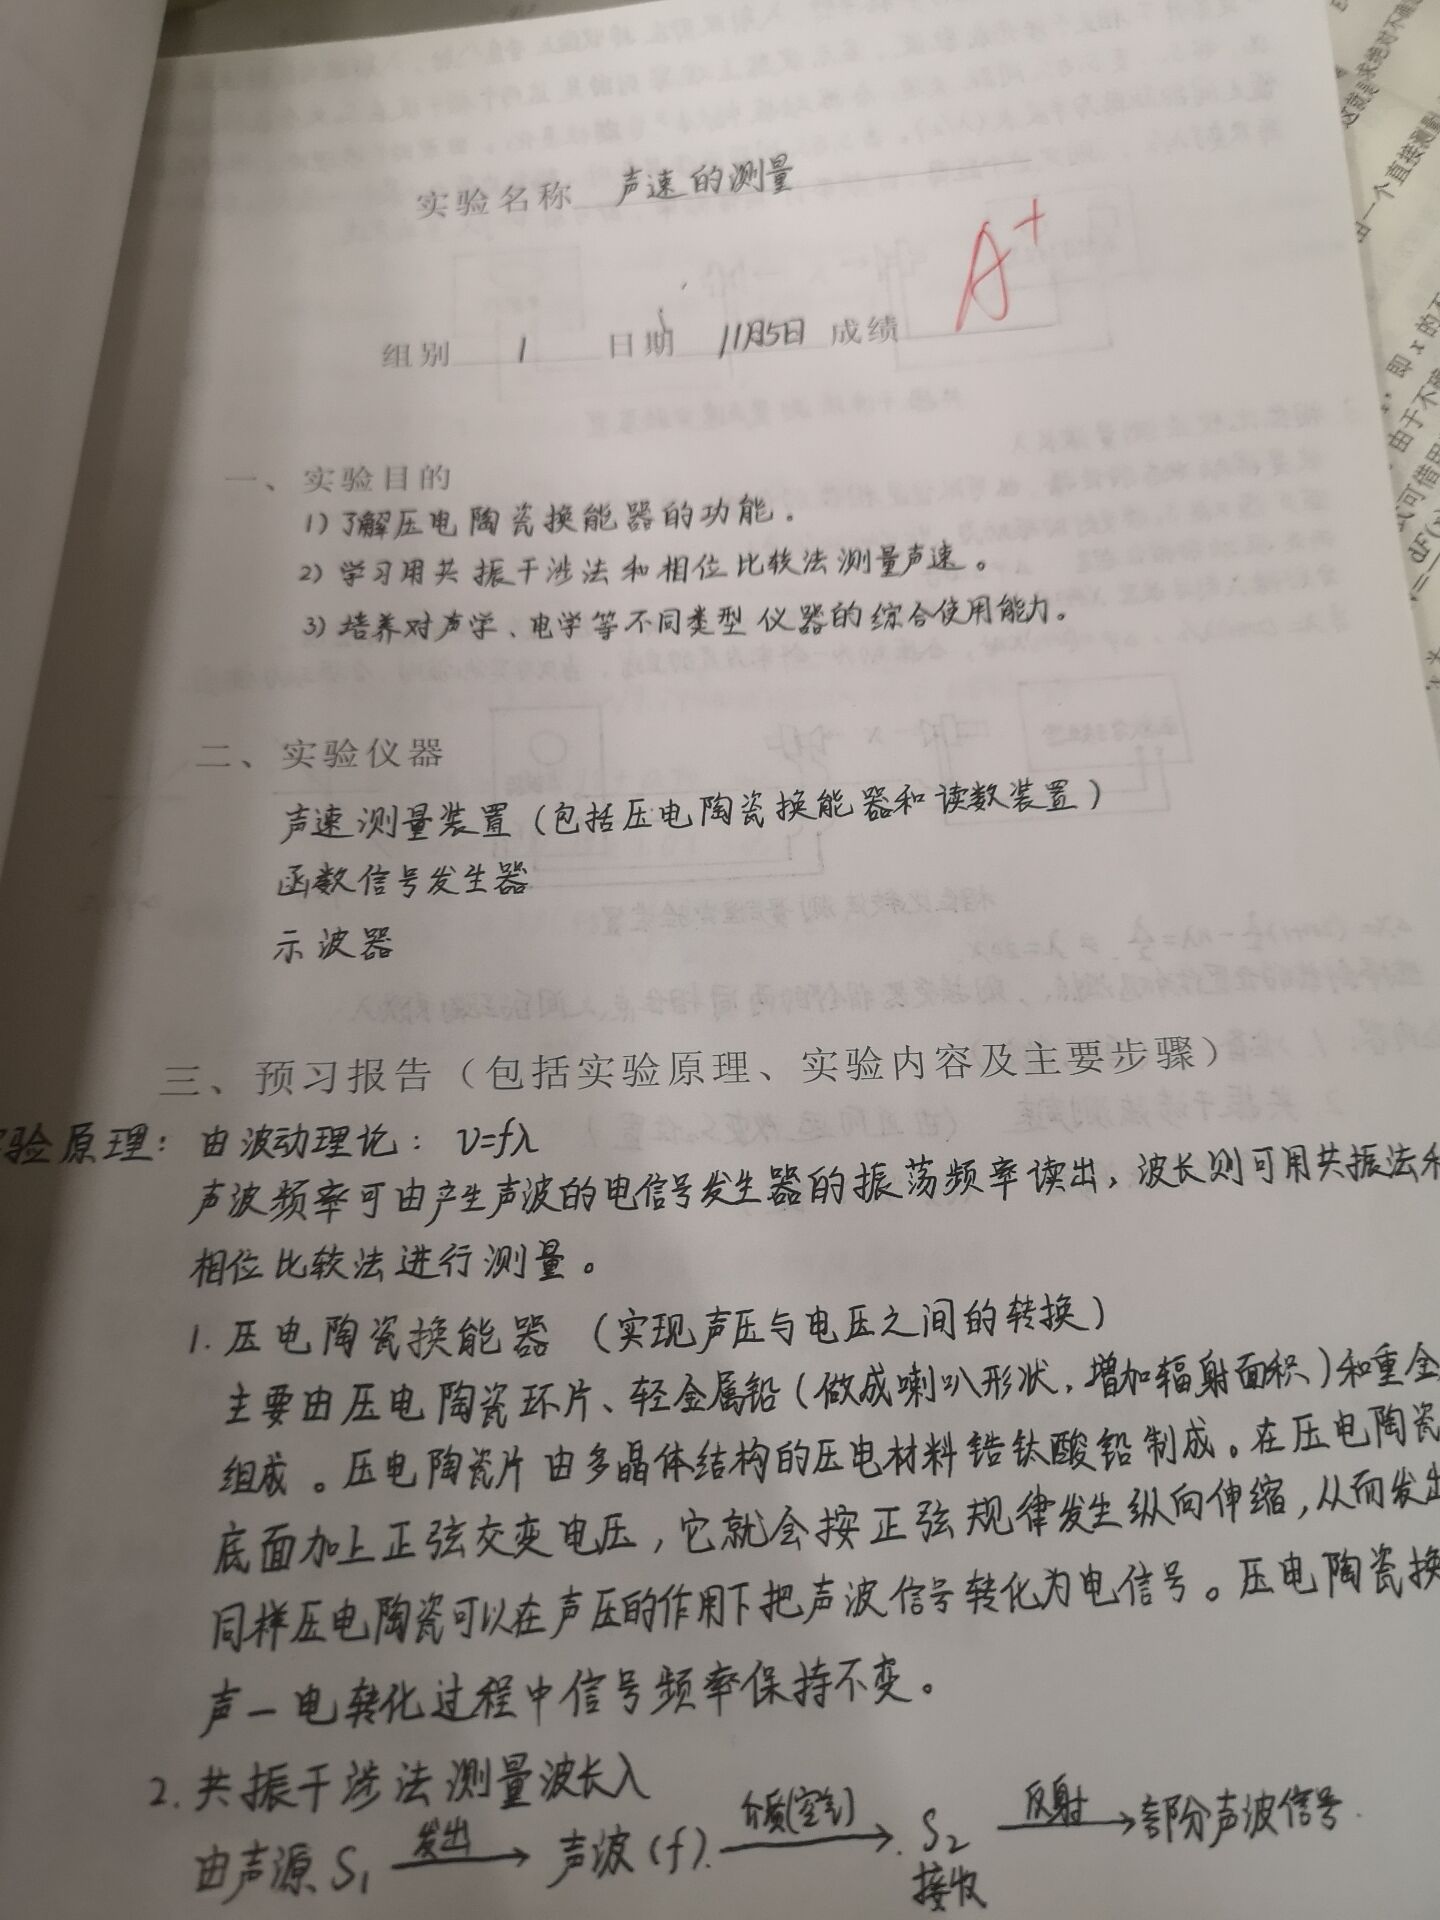 实验名称 声速的测量
A+
组别 1 日期 11月5日 成绩
一、实验目的
1) 了解压电陶瓷换能器的功能.
2) 学习用共振干涉法和相位比较法测量声速。
3) 培养对声学、电学等不同类型仪器的综合使用能力。
二、实验仪器
声速测量装置(包括压电陶瓷换能器和读数装置)
函数信号发生器
示波器
三、预习报告(包括实验原理、实验内容及主要步骤)
验原理: 由波动理论: v=fλ
声波频率可由产生声波的电信号发生器的振荡频率读出,波长则可用共振法和
相位比较法进行测量。
1. 压电陶瓷换能器 (实现声压与电压之间的转换)
主要由压电陶瓷环片、轻金属铅(做成喇叭形状,增加辐射面积)和重金
组成。压电陶瓷片由多晶体结构的压电材料锆钛酸铅制成。在压电陶瓷
底面加上正弦交变电压,它就会按正弦规律发生纵向伸缩,从而发出
同样压电陶瓷可以在声压的作用下把声波信号转化为电信号。压电陶瓷换
声一电转化过程中信号频率保持不变。
2. 共振干涉法测量波长λ
发出 介质(空气) 反射
由声源S₁ → 声波(f) → S₂ → 部分声波信号.
接收